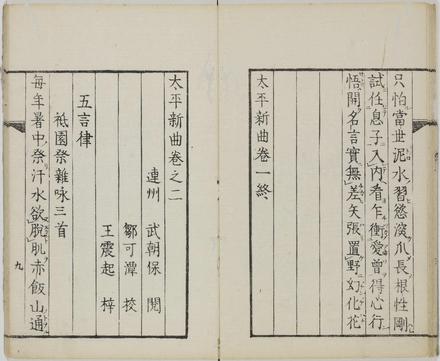 只怕當世泥水習慾深爪長根性剛
試任息子入内看乍衝愛曽得心行
悟開名言實無差矢張置野幻化花
太平新曲卷一終
太平新曲卷之二
連州 武朝保 閱
鄒可潭 校
王震起 梓
五言律
祇園祭雜咏三首
每年暑中祭汗水欲脫肌赤飯山通
九